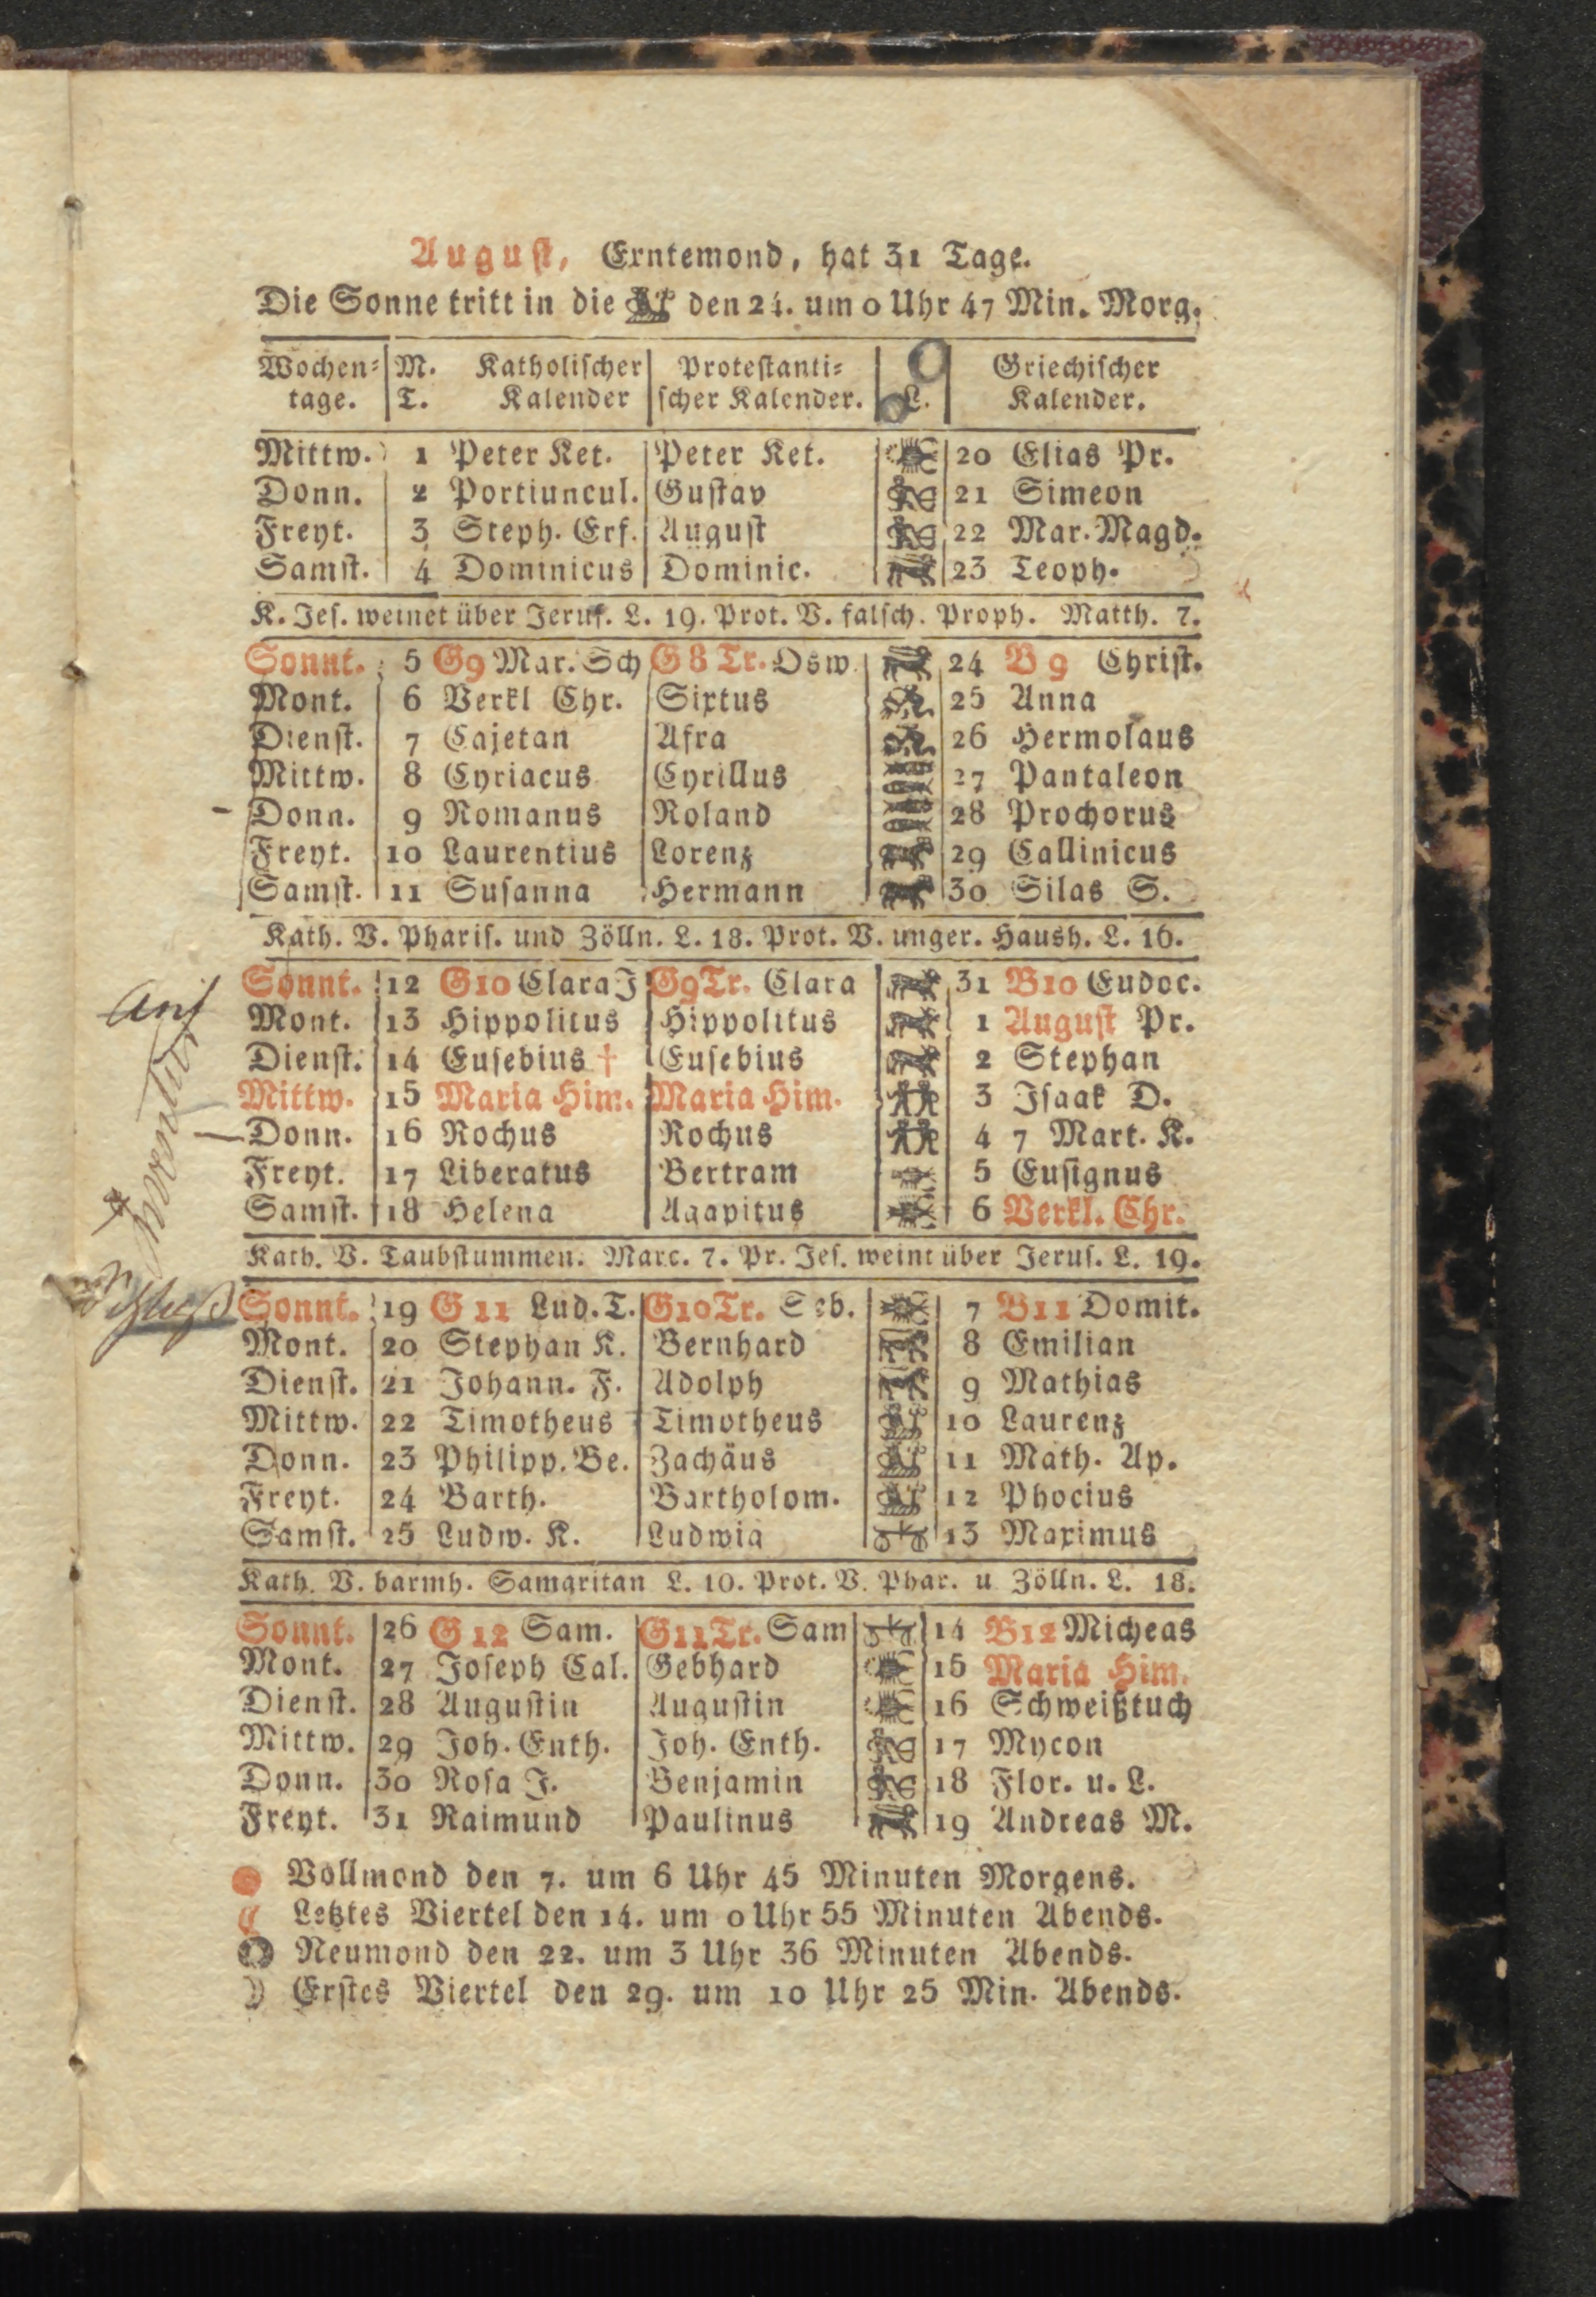 August, Erntemond, hat 31 Tage.
Die Sonne tritt in die den 24. um 0 Uhr 47 Min. Morg.
Wochen= M. Katholischer Protestanti= Griechischer
tage. T. Kalender scher Kalender. L. Kalender.
Mittw. 1 Peter Ket. Peter Ket. 20 Elias Pr.
Donn. 2 Portiuncul. Gustav 21 Simeon
Freyt. 3 Steph. Erf. August 22 Mar. Magd.
Samst. 4 Dominicus Dominic. 23 Teoph.
K. Jes. weinet über Jerus. L. 19. Prot. V. falsch. Proph. Matth. 7.
Sonnt. 5 G9 Mar. Sch G 8 Tr. Osw. 24 B 9 Christ.
Mont. 6 Verkl Chr. Sixtus 25 Anna
Dienst. 7 Cajetan Afra 26 Hermolaus
Mittw. 8 Cyriacus Cyrillus 27 Pantaleon
Donn. 9 Romanus Roland 28 Prochorus
Freyt. 10 Laurentius Lorenz 29 Callinicus
Samst. 11 Susanna Hermann 30 Silas S.
Kath. V. Pharis. und Zölln. L. 18. Prot. V. unger. Haush. L. 16.
Sonnt. 12 G10 Clara J G9 Tr. Clara 31 B10 Eudoc.
Mont. 13 Hippolitus Hippolitus 1 August Pr.
Dienst. 14 Eusebius † Eusebius 2 Stephan
Mittw. 15 Maria Him. Maria Him. 3 Isaak D.
Donn. 16 Rochus Rochus 4 7 Mart. K.
Freyt. 17 Liberatus Bertram 5 Eusignus
Samst. 18 Helena Agapitus 6 Verkl. Chr.
Kath. V. Taubstummen. Marc. 7. Pr. Jes. weint über Jerus. L. 19.
Sonnt. 19 G 11 Lud. T. G10 Tr. Seb. 7 B11 Domit.
Mont. 20 Stephan K. Bernhard 8 Emilian
Dienst. 21 Johann. F. Adolph 9 Mathias
Mittw. 22 Timotheus Timotheus 10 Laurenz
Donn. 23 Philipp. Be. Zachäus 11 Math. Ap.
Freyt. 24 Barth. Bartholom. 12 Phocius
Samst. 25 Ludw. K. Ludwig 13 Maximus
Kath. V. barmh. Samaritan L. 10. Prot. V. Phar. u Zölln. L. 18.
Sonnt. 26 G 12 Sam. G11 Tr. Sam 14 B12 Micheas
Mont. 27 Joseph Cal. Gebhard 15 Maria Him.
Dienst. 28 Augustin Augustin 16 Schweißtuch
Mittw. 29 Joh. Enth. Joh. Enth. 17 Mycon
Donn. 30 Rosa J. Benjamin 18 Flor. u. L.
Freyt. 31 Raimund Paulinus 19 Andreas M.
Vollmond den 7. um 6 Uhr 45 Minuten Morgens.
Letztes Viertel den 14. um 0 Uhr 55 Minuten Abends.
Neumond den 22. um 3 Uhr 36 Minuten Abends.
Erstes Viertel den 29. um 10 Uhr 25 Min. Abends.